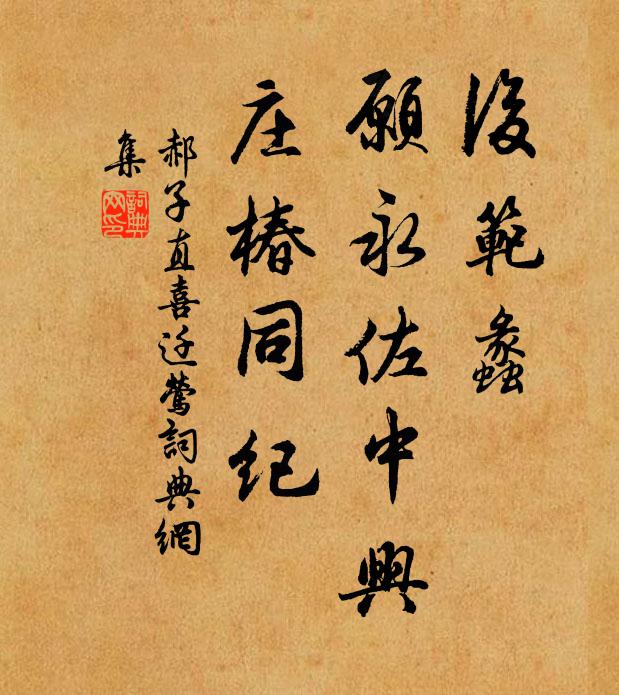 後範蠡
願永佐中興
庄椿同紀
郝子直喜迁鶯詞典網
集
詞典
网印